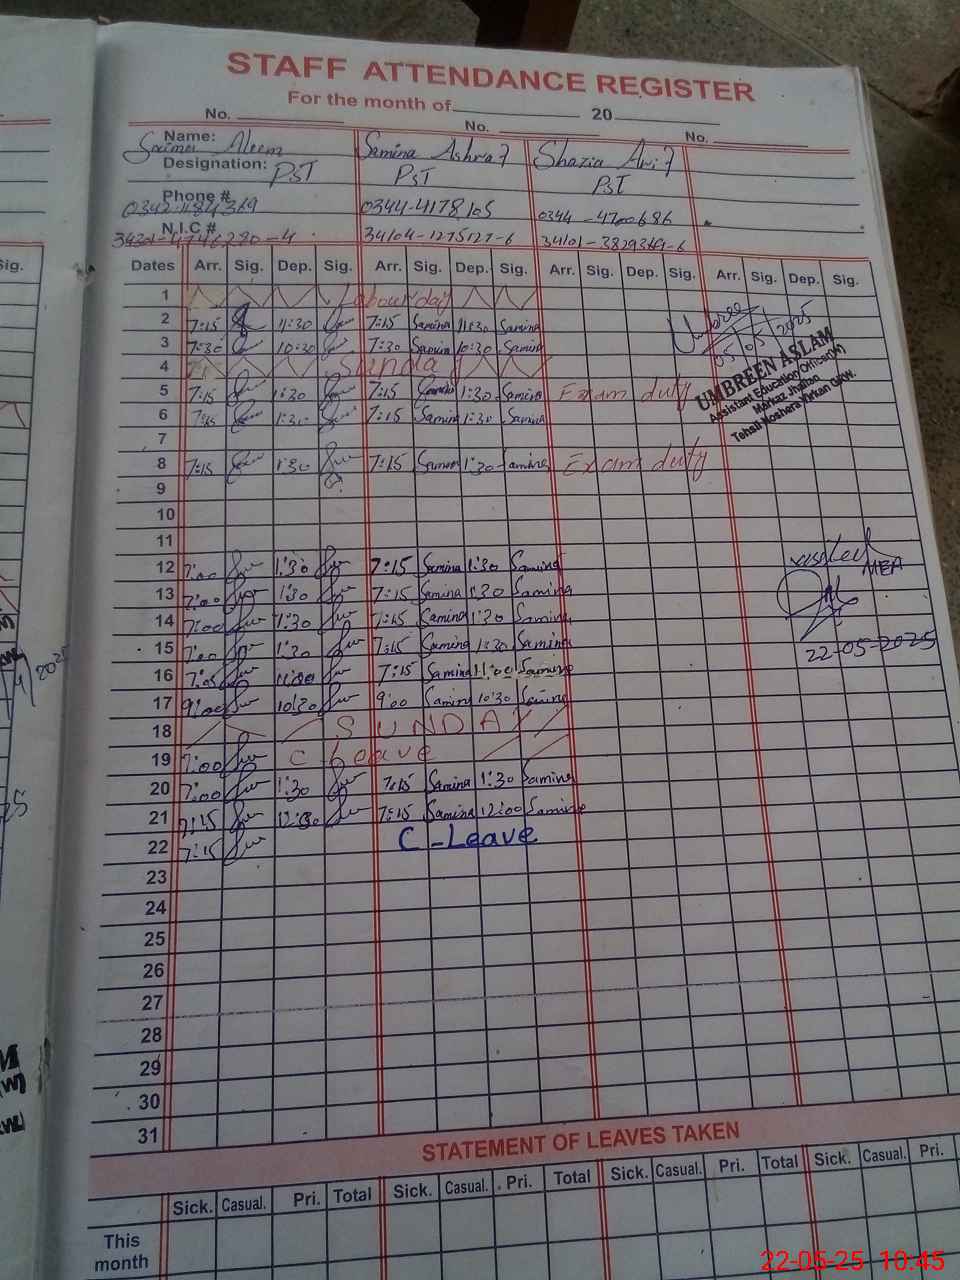 STAFF ATTENDANCE REGISTER
For the month of 20
No. No. No.
Name: Saima Aleem Samina Ashraf Shazia Arif
Designation: PST PST PST
Phone # 0344-4178105 0344-4700686
N.I.C # 34104-1275127-6
Dates Arr. Sig. Dep. Sig. Arr. Sig. Dep. Sig. Arr. Sig. Dep. Sig. Arr. Sig. Dep. Sig.
1 Labour day
2 7:15 11:30 7:15 Samina 11:30 Samina
3 7:30 10:30 7:30 Samina 10:30 Samina
4 Sunda
5 7:15 1:30 7:15 Samina 1:30 Samina Exam duty
6 7:15 1:30 7:15 Samina 1:30 Samina
7
8 7:15 1:30 7:15 Samina 1:30 Samina Exam duty
9
10
11
12 7:00 1:30 7:15 Samina 1:30 Samina
13 7:00 1:30 7:15 Samina 1:30 Samina
14 7:00 1:30 7:15 Samina 1:30 Samina
15 7:00 1:30 7:15 Samina 1:30 Samina
16 7:05 11:00 7:15 Samina 11:00 Samina
17 9:00 10:30 9:00 Samina 10:30 Samina
18 SUNDAY
19 7:00 C Leave
20 7:00 1:30 7:15 Samina 1:30 Samina
21 7:15 12:30 7:15 Samina 12:00 Samina
22 7:15 C-Leave
23
24
25
26
27
28
29
30
31
05 05 2025
UMBREEN ASLAM
Assistant Education Officer(W)
Markaz Jhallan
Tehsil Noshera Virkan GRW.
MEA
22-05-2025
STATEMENT OF LEAVES TAKEN
Sick. Casual. Pri. Total Sick. Casual. Pri. Total Sick. Casual. Pri. Total Sick. Casual. Pri.
This
month
22-05-25 10:45